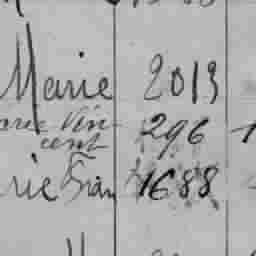 Marie 2013
Vin- 296
cent
rie Fran 1688